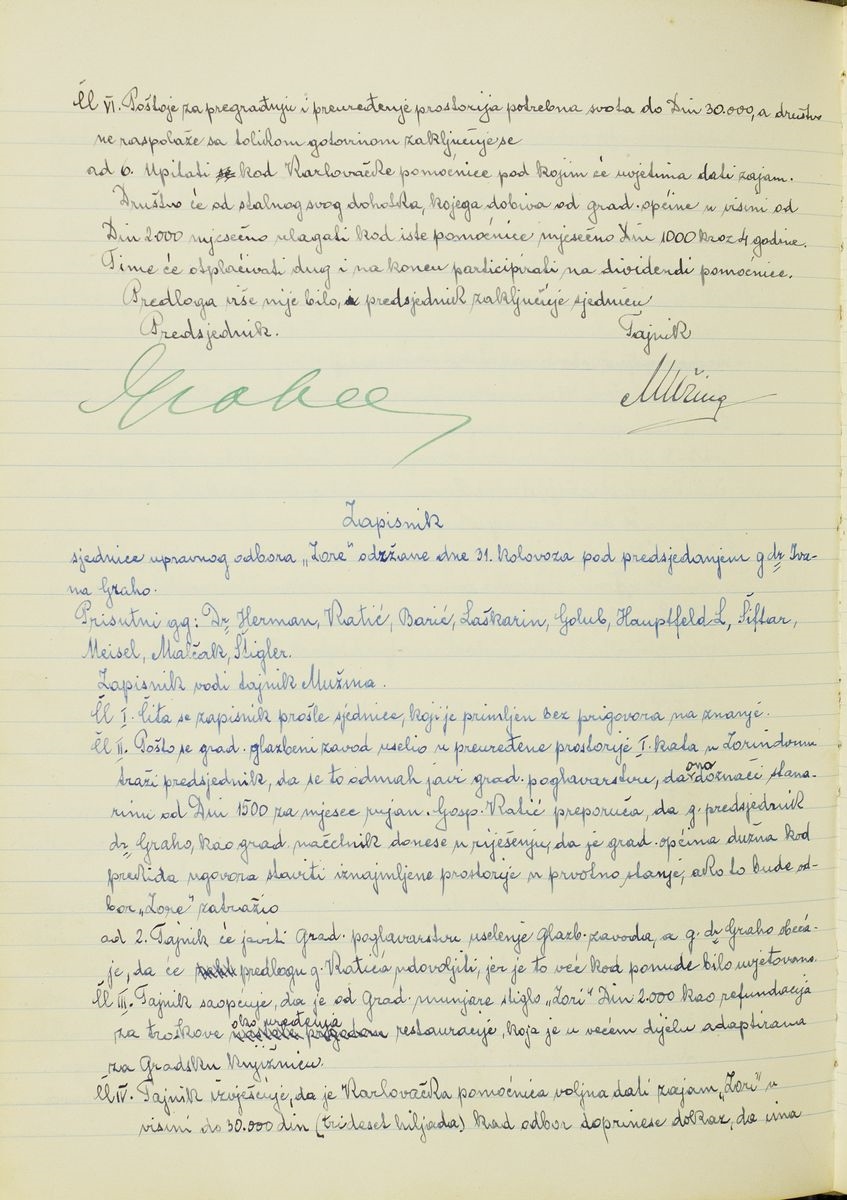 Čl VI. Pošto je za pregradnju i preuređenje prostorija potrebna svota do Din 30.000, a društvo
ne raspolaže sa tolikom gotovinom zaključuje se
ad 6. Upitati kod Karlovačke pomoćnice pod kojim će uvjetima dati zajam.
Društvo će od stalnog svog dohotka, kojega dobiva od grad. općine u visini od
Din 2.000 mjesečno ulagati kod iste pomoćnice mjesečno Din 1000 kroz 4 godine.
Time će otplaćivati dug i na koncu participirati na dividendi pomoćnice.
Predloga više nije bilo, predsjednik zaključuje sjednicu
Predsjednik. Tajnik
Zapisnik
sjednice upravnog odbora „Zore" održane dne 31. kolovoza pod predsjedanjem g dr Iva-
na Graho.
Prisutni gg: Dr Herman, Katić, Barić, Laškarin, Golub, Hauptfeld L, Šiftar,
Meisel, Malčak, Štigler.
Zapisnik vodi tajnik Mužina.
Čl I. Čita se zapisnik prošle sjednice, koji je primljen bez prigovora na znanje.
Čl II. Pošto se grad. glazbeni zavod uselio u preuređene prostorije I. kata u Zorindomu
traži predsjednik, da se to odmah javi grad. poglavarstvu, da ono doznači stana-
rinu od Din 1500 za mjesec rujan. Gosp. Katić preporuča, da g. predsjednik
dr Graho, kao grad. načelnik donese u riješenju, da je grad. općina dužna kod
prekida ugovora staviti iznajmljene prostorije u prvotno stanje, ako to bude od-
bor „Zore" zatražio
ad 2. Tajnik će javiti Grad. poglavarstvu uselenje Glazb. zavoda, a g. dr Graho obeća-
je, da će predlogu g. Katića udovoljiti, jer je to već kod ponude bilo uvjetovano.
Čl III. Tajnik saopćuje, da je od Grad. munjare stiglo „Zori" Din 2.000 kao refundacija
za troškove oko uređenja restauracije, koja je u većem dijelu adaptirana
za Gradsku knjižnicu.
Čl IV. Tajnik izvješćuje, da je Karlovačka pomoćnica voljna dati zajam „Zori" u
visini do 30.000 din (trideset hiljada) kad odbor doprinese dokaz, da ima